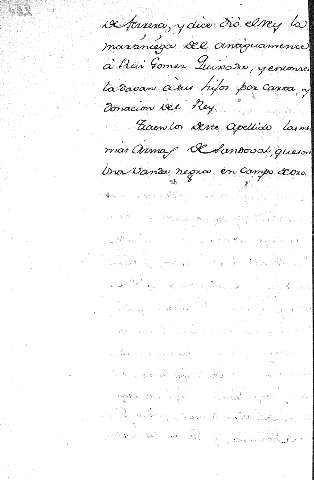 de Herrera, y dice dió el Rey la
maraniega del antiguamente
á Rui Gomez Quixada, y entonces
la davan á sus hijos por carta, y
donacion del Rey.
Traen los deste Apellido las mis
mas Armas de Sandoval, que son
Una Vanda negra en campo de oro.